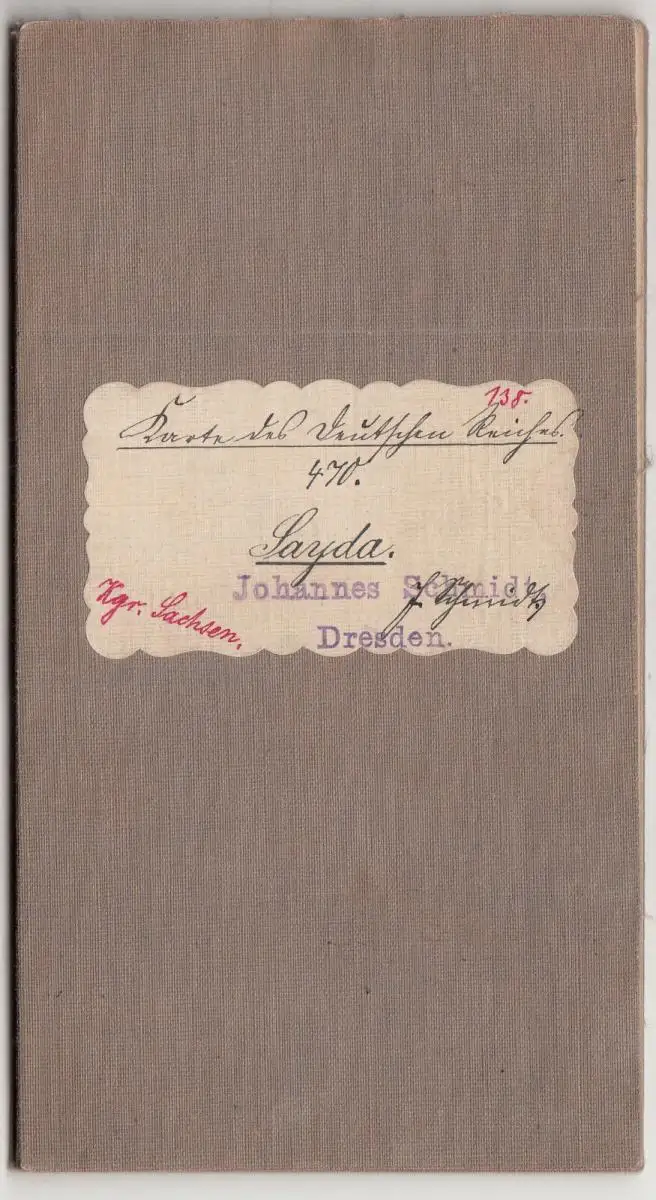 138.
Karte des Deutschen Reiches.
470.
Sayda.
Johannes Schmidt,
J. Schmidt
Kgr. Sachsen.
Dresden.